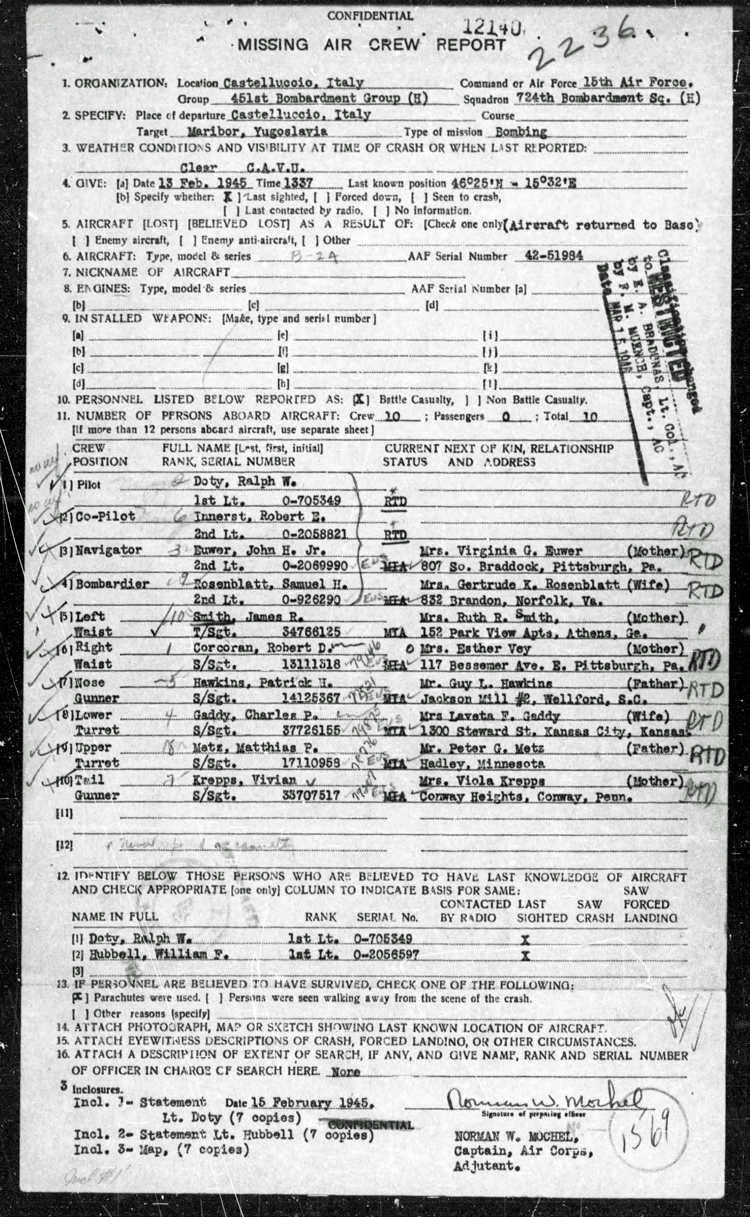 CONFIDENTIAL
12140
MISSING AIR CREW REPORT
2236
1. ORGANIZATION: Location Castelluccio, Italy Command or Air Force 15th Air Force.
Group 451st Bombardment Group (H) Squadron 724th Bombardment Sq. (H)
2. SPECIFY: Place of departure Castelluccio, Italy Course
Target Maribor, Yugoslavia Type of mission Bombing
3. WEATHER CONDITIONS AND VISIBILITY AT TIME OF CRASH OR WHEN LAST REPORTED:
Clear C.A.V.U.
4. GIVE: [a] Date 13 Feb. 1945 Time 1337 Last known position 46°25'N - 15°32'E
[b] Specify whether: [X] Last sighted, [ ] Forced down, [ ] Seen to crash,
[ ] Last contacted by radio, [ ] No information.
5. AIRCRAFT [LOST] [BELIEVED LOST] AS A RESULT OF: [Check one only (Aircraft returned to Base)
[ ] Enemy aircraft, [ ] Enemy anti-aircraft, [ ] Other
6. AIRCRAFT: Type, model & series B-24 AAF Serial Number 42-51984
7. NICKNAME OF AIRCRAFT
8. ENGINES: Type, model & series AAF Serial Number [a]
[b] [c] [d]
9. INSTALLED WEAPONS: [Make, type and serial number]
[a] [e] [i]
[b] [f] [j]
[c] [g] [k]
[d] [h] [l]
Classification changed
to RESTRICTED
by E. A. BRADUNAS Lt. Col., AC
by F. M. MUENCH, Capt., AC
Date MAR 15 1946
10. PERSONNEL LISTED BELOW REPORTED AS: [X] Battle Casualty, [ ] Non Battle Casualty.
11. NUMBER OF PERSONS ABOARD AIRCRAFT: Crew 10 ; Passengers 0 ; Total 10
[If more than 12 persons aboard aircraft, use separate sheet]
CREW FULL NAME [Last, first, initial] CURRENT NEXT OF KIN, RELATIONSHIP
POSITION RANK, SERIAL NUMBER STATUS AND ADDRESS
[1] Pilot 2 Doty, Ralph W.
1st Lt. 0-705349 RTD RTD
[2] Co-Pilot 6 Innerst, Robert E.
2nd Lt. 0-2058821 RTD RTD
[3] Navigator 3 Euwer, John H. Jr. Mrs. Virginia G. Euwer (Mother)
2nd Lt. 0-2069990 EUS MIA 807 So. Braddock, Pittsburgh, Pa. RTD
[4] Bombardier 9 Rosenblatt, Samuel H. Mrs. Gertrude K. Rosenblatt (Wife)
2nd Lt. 0-926290 EUS MIA 832 Brandon, Norfolk, Va. RTD
[5] Left 10 Smith, James R. Mrs. Ruth R. Smith, (Mother)
Waist T/Sgt. 34766125 MIA 152 Park View Apts, Athens, Ga.
[6] Right 1 Corcoran, Robert D. Mrs. Esther Vey (Mother)
Waist S/Sgt. 13111318 MIA 117 Bessemer Ave. E. Pittsburgh, Pa. RTD
[7] Nose 5 Hawkins, Patrick H. Mr. Guy L. Hawkins (Father)
Gunner S/Sgt. 14125367 EUS MIA Jackson Mill #2, Wellford, S.C. RTD
[8] Lower 4 Gaddy, Charles P. Mrs Laveta F. Gaddy (Wife)
Turret S/Sgt. 37726155 EUS MIA 1300 Steward St. Kansas City, Kansas RTD
[9] Upper 8 Metz, Matthias P. Mr. Peter G. Metz (Father)
Turret S/Sgt. 17110958 EUS MIA Hadley, Minnesota RTD
[10] Tail 7 Krepps, Vivian Mrs. Viola Krepps (Mother)
Gunner S/Sgt. 33707517 EUS MIA Conway Heights, Conway, Penn. RTD
[11]
[12]
12. IDENTIFY BELOW THOSE PERSONS WHO ARE BELIEVED TO HAVE LAST KNOWLEDGE OF AIRCRAFT
AND CHECK APPROPRIATE [one only] COLUMN TO INDICATE BASIS FOR SAME: SAW
CONTACTED LAST SAW FORCED
NAME IN FULL RANK SERIAL No. BY RADIO SIGHTED CRASH LANDING
[1] Doty, Ralph W. 1st Lt. 0-705349 X
[2] Hubbell, William F. 1st Lt. 0-2056597 X
[3]
13. IF PERSONNEL ARE BELIEVED TO HAVE SURVIVED, CHECK ONE OF THE FOLLOWING:
[X] Parachutes were used. [ ] Persons were seen walking away from the scene of the crash.
[ ] Other reasons [specify]
14. ATTACH PHOTOGRAPH, MAP OR SKETCH SHOWING LAST KNOWN LOCATION OF AIRCRAFT.
15. ATTACH EYEWITNESS DESCRIPTIONS OF CRASH, FORCED LANDING, OR OTHER CIRCUMSTANCES.
16. ATTACH A DESCRIPTION OF EXTENT OF SEARCH, IF ANY, AND GIVE NAME, RANK AND SERIAL NUMBER
OF OFFICER IN CHARGE OF SEARCH HERE. None
3 Inclosures.
Incl. 1- Statement Date 15 February 1945. Norman W. Mochel
Lt. Doty (7 copies) Signature of preparing officer
CONFIDENTIAL
Incl. 2- Statement Lt. Hubbell (7 copies) NORMAN W. MOCHEL,
Incl. 3- Map, (7 copies) Captain, Air Corps,
Adjutant.
1569
Incl #1